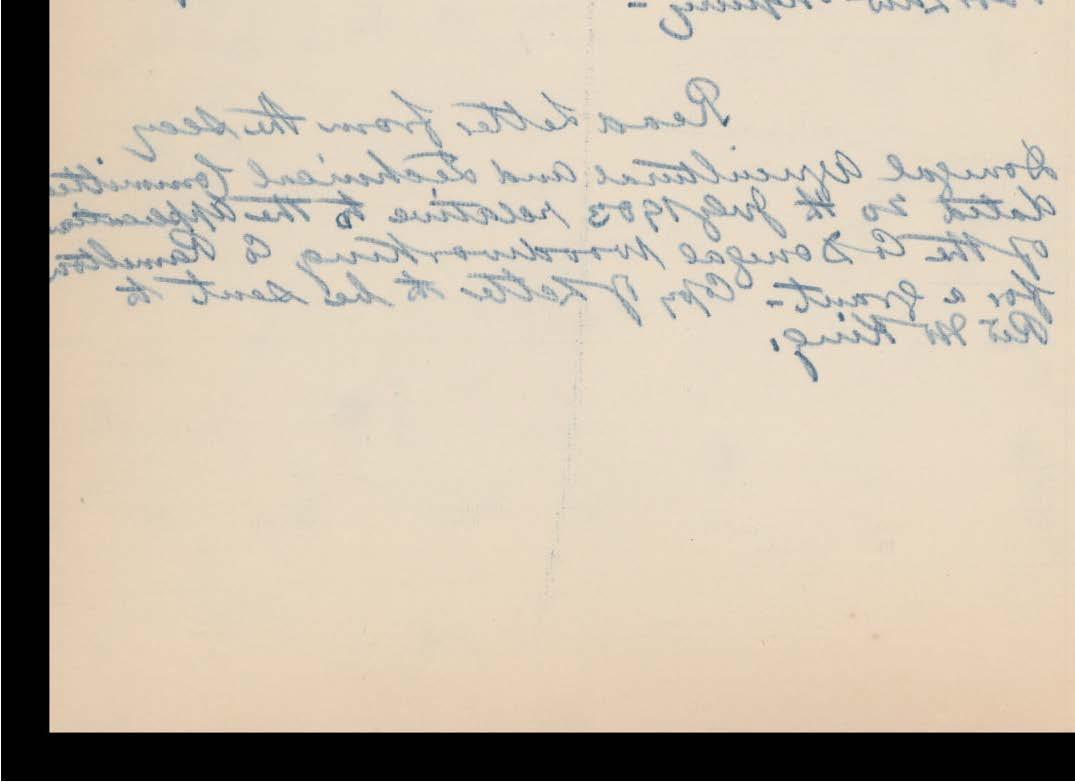 Read Letter from the Secy
Donegal Agricultural and Technical Committee
dated 20th July 1903 relative to the application
of the Co Donegal Woodworking Co Ramelton
for a grant - Copy of Letter to be sent to
Revd Mr King.